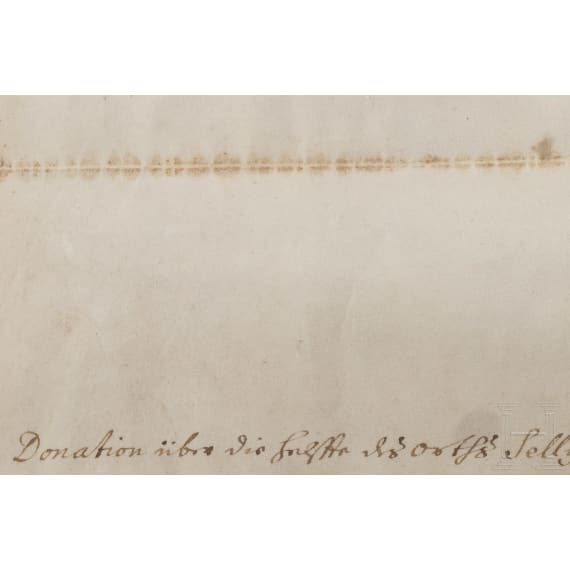 Donation über die helffte des orths Selly